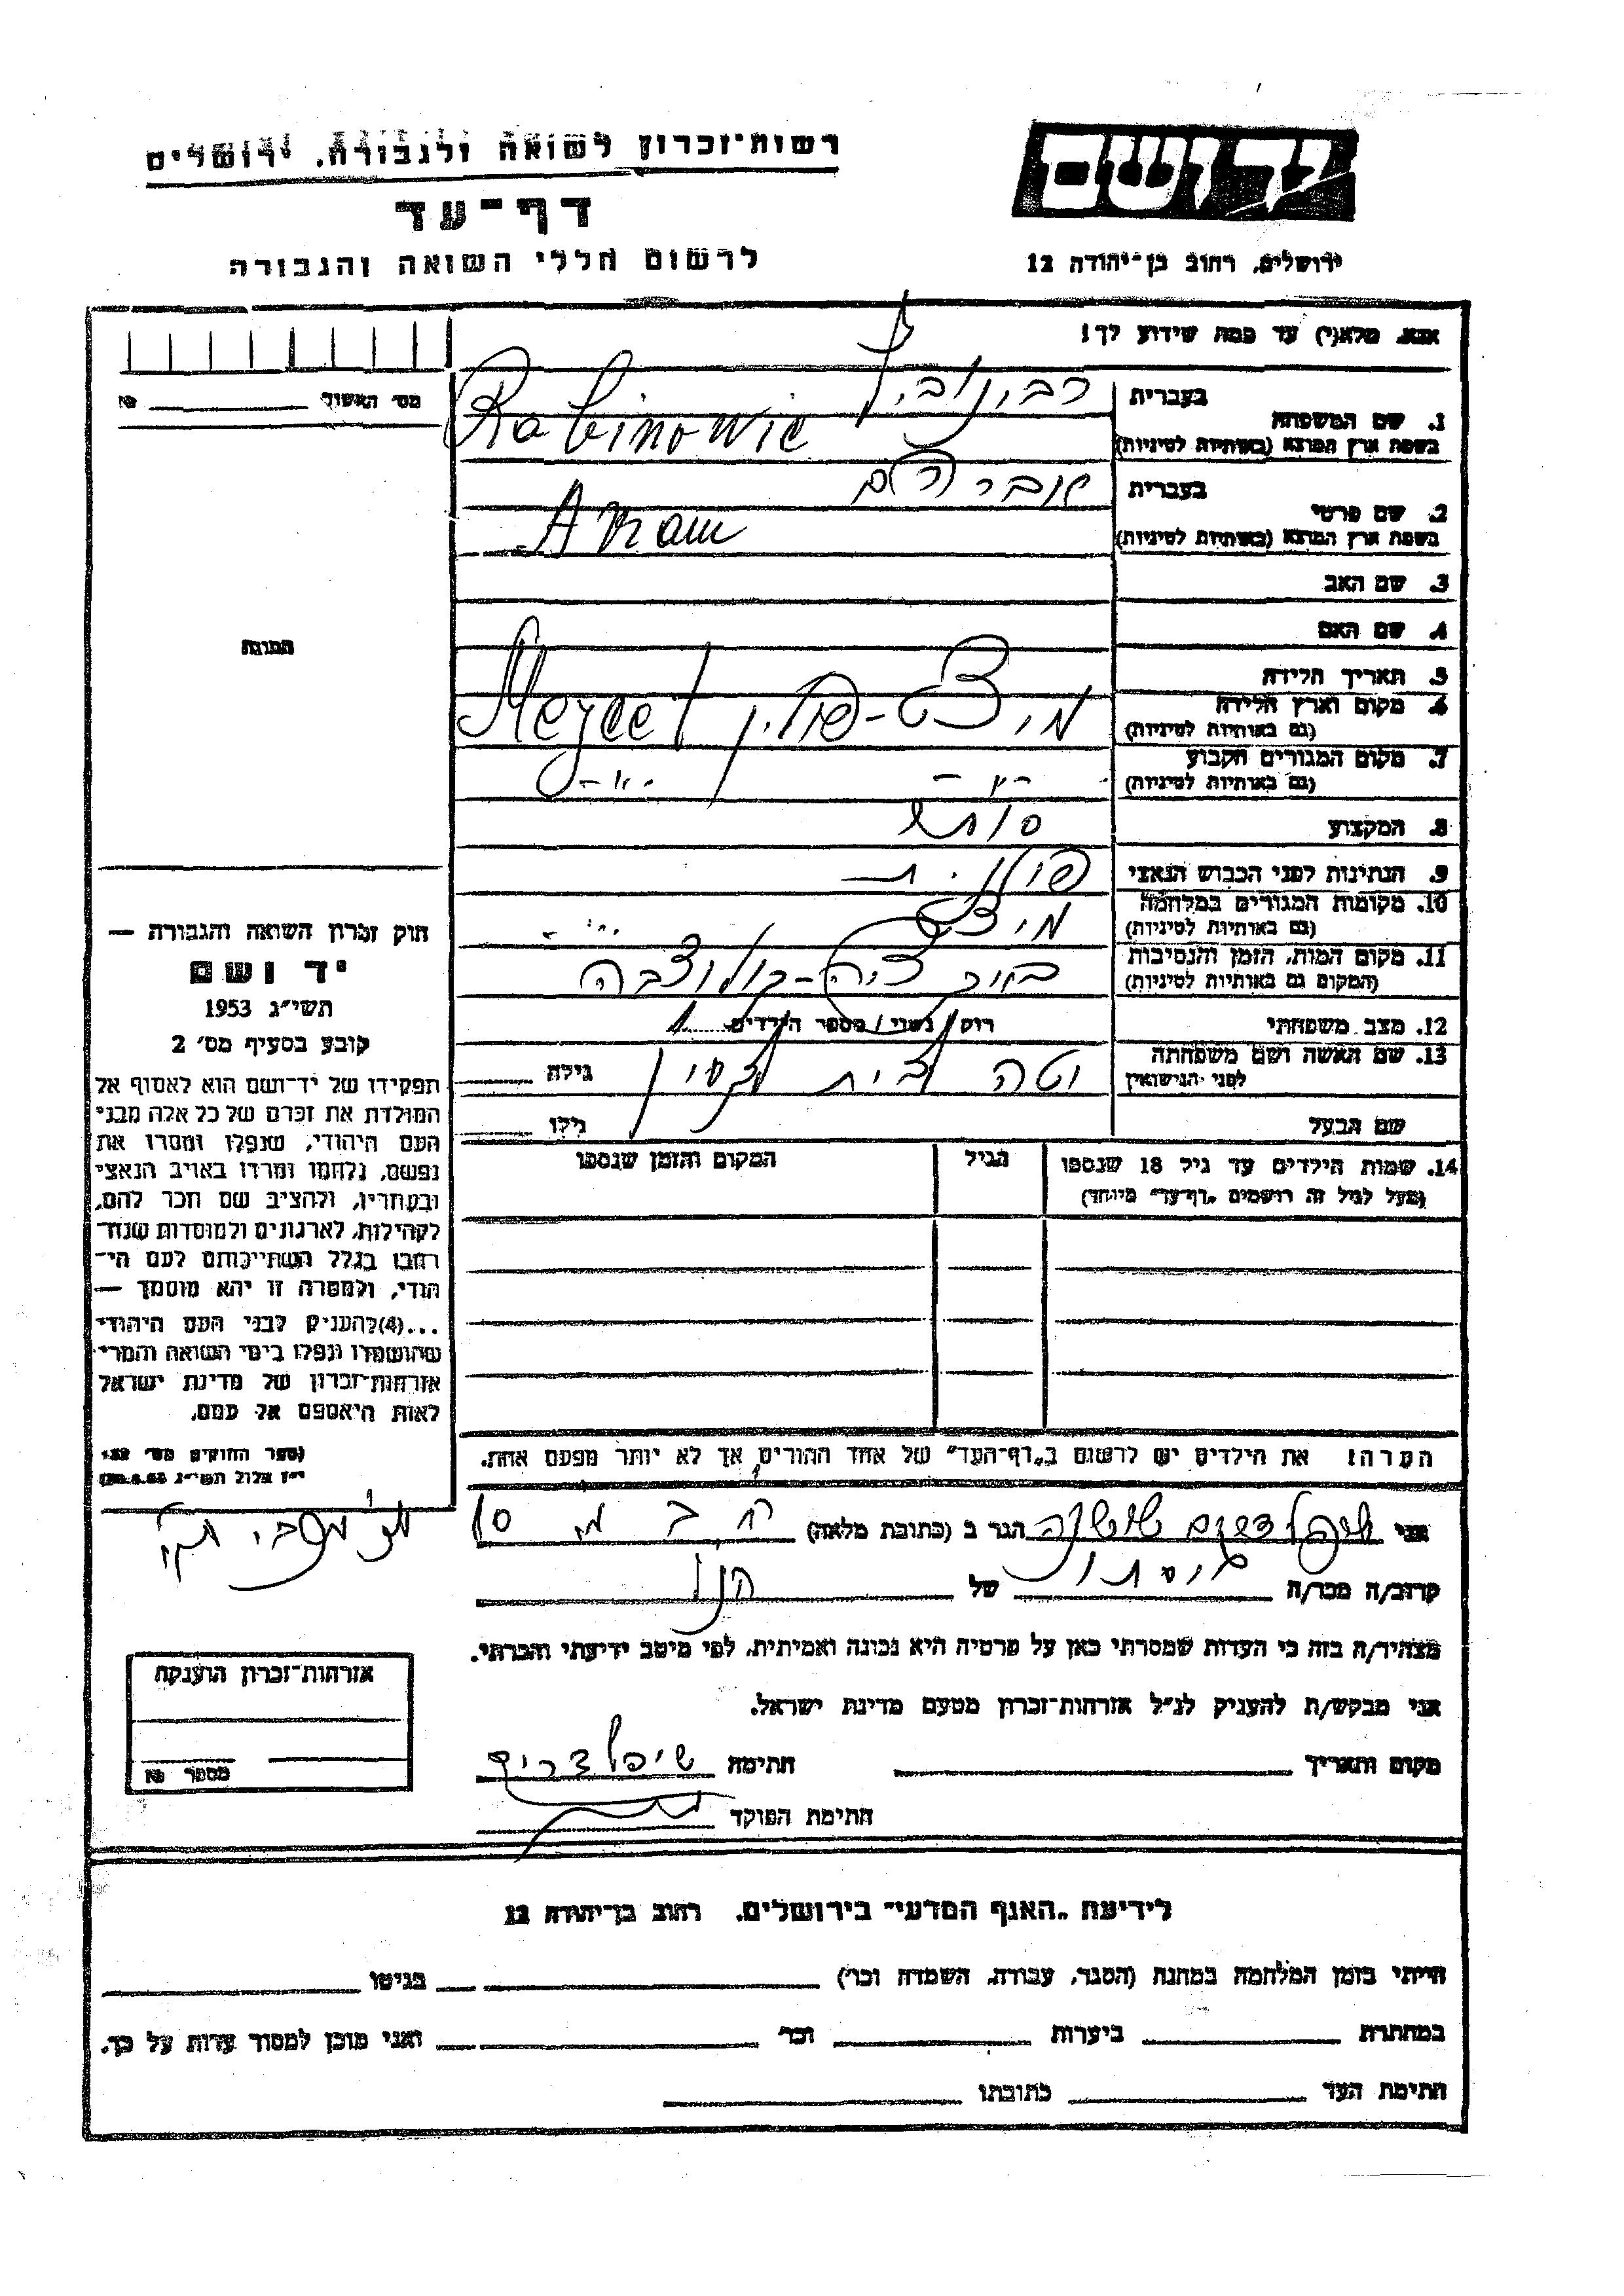 רשות־זכרון לשואה ולגבורה, ירושלים
דף־עד
לרשום חללי השואה והגבורה
יד ושם
ירושלים, רחוב בן־יהודה 12
אנא, מלא(י) עד כמה שידוע לך!
מס׳ האשור ________ №
1. שם המשפחה
בעברית רבינוביץ
בשפת ארץ המוצא (באותיות לטיניות) Rabinowic
2. שם פרטי
בעברית אברהם
בשפת ארץ המוצא (באותיות לטיניות) Avram
3. שם האב
4. שם האם
5. תאריך הלידה
6. מקום וארץ הלידה
(גם באותיות לטיניות)
פולין
7. מקום המגורים הקבוע
(גם באותיות לטיניות) -"- -"-
8. המקצוע סוחר
9. הנתינות לפני הכבוש הנאצי פולנית
10. מקומות המגורים במלחמה
(גם באותיות לטיניות)
11. מקום המות, הזמן והנסיבות
(המקום גם באותיות לטיניות)
12. מצב משפחתי רווק / נשוי / מספר הילדים
13. שם האשה ושם משפחתה
לפני הנישואין
יטה לבית
גילה
שם הבעל
גילו
14. שמות הילדים עד גיל 18 שנספו
(מעל לגיל זה רושמים „דף־עד״ מיוחד)
הגיל
המקום והזמן שנספו
הערה! את הילדים יש לרשום ב„דף־העד״ של אחד ההורים, אך לא יותר מפעם אחת.
התמונה
חוק זכרון השואה והגבורה —
יד ושם
תשי״ג 1953
קובע בסעיף מס׳ 2
תפקידו של יד־ושם הוא לאסוף אל
המולדת את זכרם של כל אלה מבני
העם היהודי, שנפלו ומסרו את
נפשם, נלחמו ומרדו באויב הנאצי
ובעוזריו, ולהציב שם וזכר להם,
לקהילות, לארגונים ולמוסדות שנח־
רבו בגלל השתייכותם לעם הי־
הודי, ולמטרה זו יהא מוסמך —
...(4) להעניק לבני העם היהודי
שהושמדו ונפלו בימי השואה והמרי
אזרחות־זכרון של מדינת ישראל
לאות היאספם אל עמם.
(ספר החוקים מס׳ 132
י״ז אלול תשי״ג 28.8.53)
אני שושנה הגר ב (כתובת מלאה)
קרוב/ה מכר/ה של הנ"ל
מצהיר/ה בזה כי העדות שמסרתי כאן על פרטיה היא נכונה ואמיתית, לפי מיטב ידיעתי והכרתי.
אני מבקש/ת להעניק לנ״ל אזרחות־זכרון מטעם מדינת ישראל.
מקום ותאריך חתימה
חתימת הפוקד
אזרחות־זכרון הוענקה
מספר №
לידיעת „האגף המדעי״ בירושלים, רחוב בן־יהודה 12
הייתי בזמן המלחמה במחנה (הסגר, עבודה, השמדה וכו׳) בגיטו
במחתרת ביערות וכו׳ ואני מוכן למסור עדות על כך.
חתימת העד כתובתו